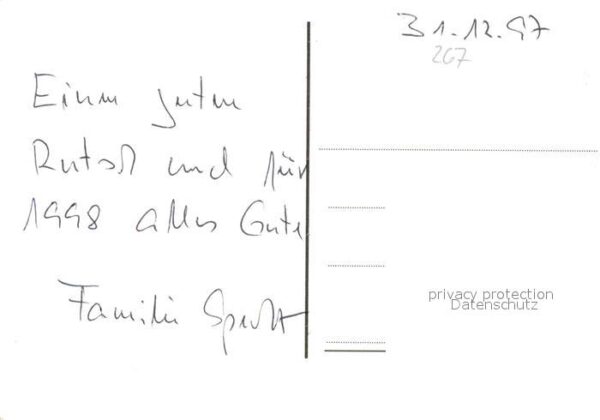 31.12.97
267
Einen guten
Rutsch und für
1998 alles Gute
Familie
privacy protection
Datenschutz